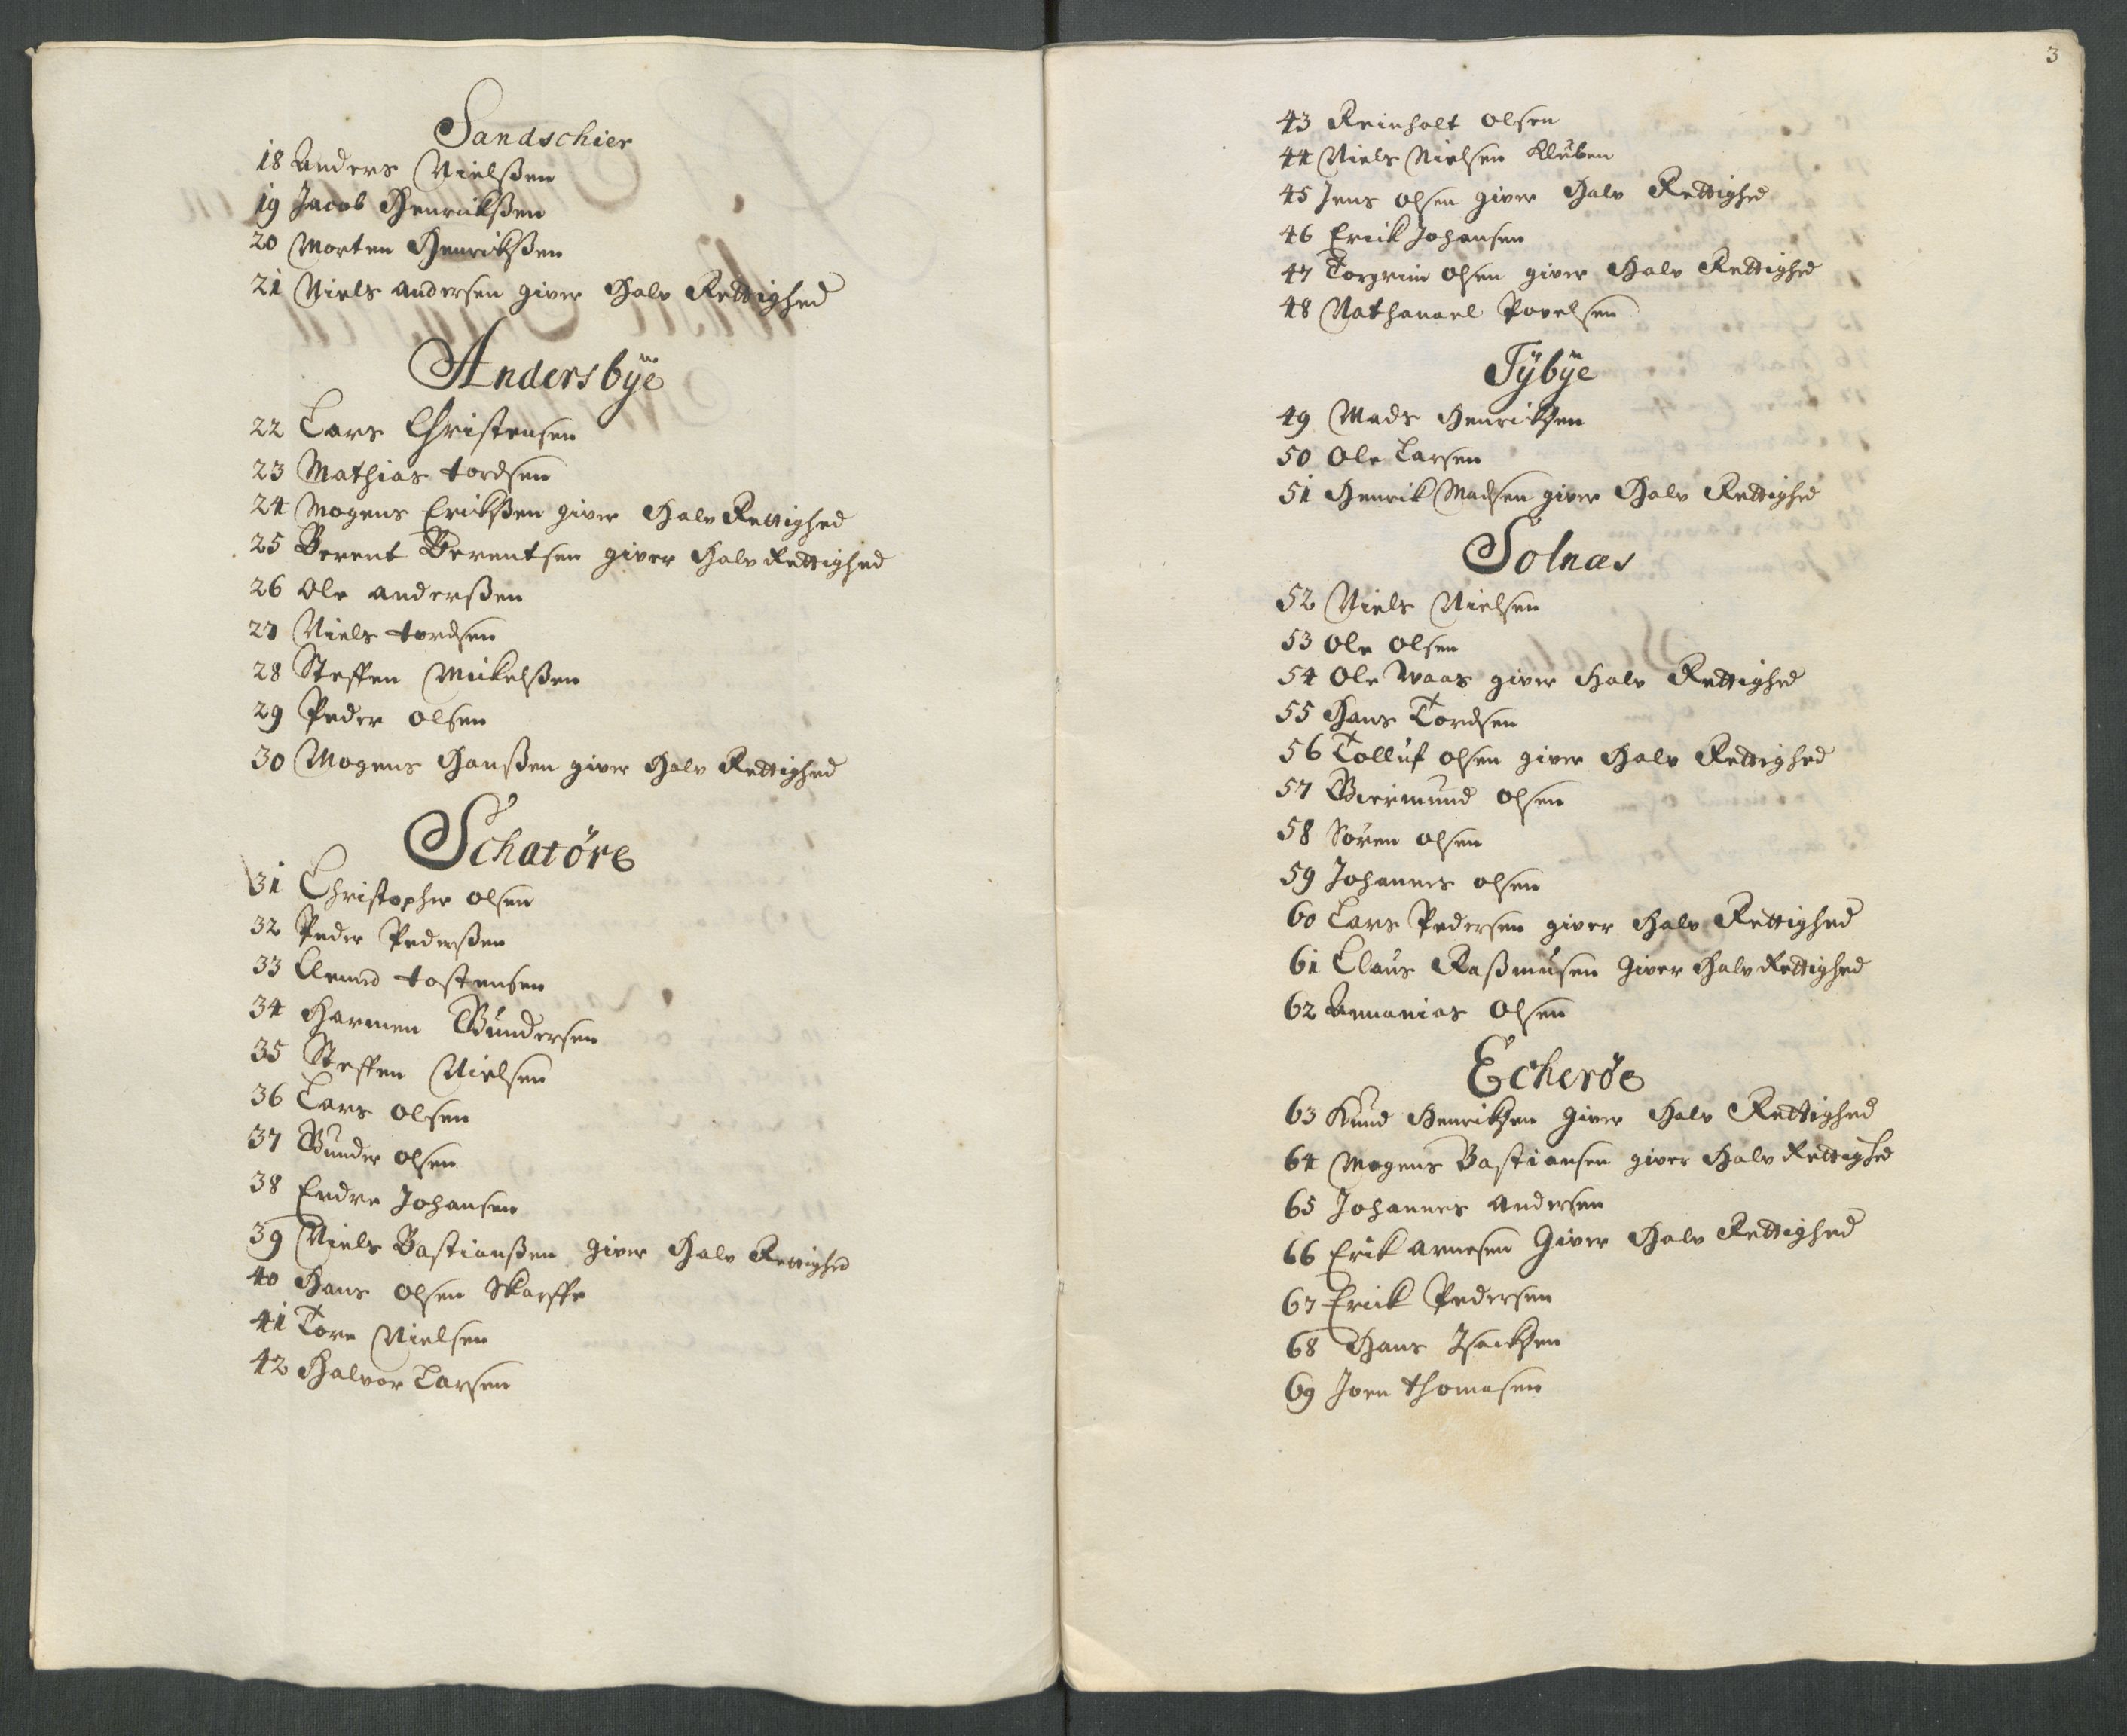 Sandschier
18 Anders Nielßen
19 Jacob Henrikßen
20 Morten Henrikßen
21 Niels andersen giver Halv Rettighed
Andersbÿe
22 Lars Christensen
23 Mathias tordsen
24 Mogens Erickßen giver Halv Rettighed
25 Berent Berentsen giver Halv Rettighed
26 Ole anderßen
27 Niels tordsen
28 Steffen Mickelßen
29 Peder olsen
30 Mogens Hanßen giver Halv Rettighed
Schatöre
31 Christopher olsen
32 Peder Pederßen
33 tostensen
34 Harmen Gundersen
35 Steffen Nielsen
36 Lars olsen
37 Gunder olsen
38 Endre Johansen
39 Niels Bastianßen giver Halv Rettighed
40 Hans olsen Skarffe
41 Tore Nielsen
42 Halvor Larsen
3
43 Reinholt olsen
44 Niels Nielsen Kluben
45 Jens olsen giver Halv Rettighed
46 Erick Johansen
47 Torgrim olsen giver Halv Rettighed
48 Nathanael Povelsen
Tÿbÿe
49 Mads Henriksen
50 Ole Larsen
51 Henrik Madsen giver Halv Rettighed
Solnæs
52 Niels Nielsen
53 Ole olsen
54 Ole Waas giver Halv Rettighed
55 Hans Tordsen
56 Tolluf olsen giver Halv Rettighed
57 Giermund olsen
58 Sören olsen
59 Johannes olsen
60 Lars Pedersen giver Halv Rettighed
61 Claus Raßmusen Giver Halv Rettighed
62 Annanias Olsen
Echeröe
63 Knud Henriksen Giver Halv Rettighed
64 Mogens Bastiansen giver Halv Rettighed
65 Johannes andersen
66 Erik arnesen Giver Halv Rettighed
67 Erick Pedersen
68 Hans Isacksen
69 Joen thomasen